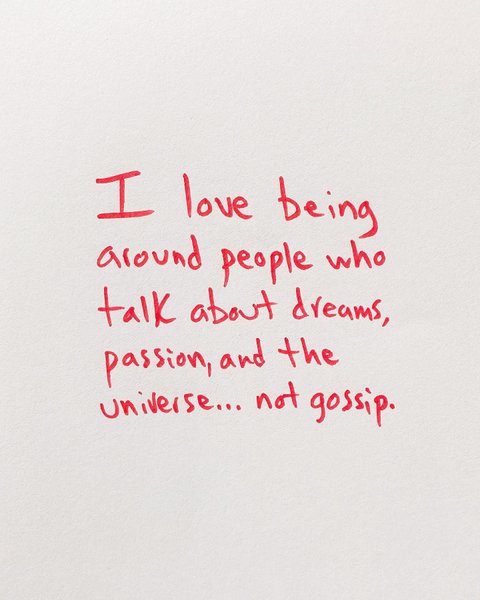 I love being
around people who
talk about dreams,
passion, and the
universe... not gossip.